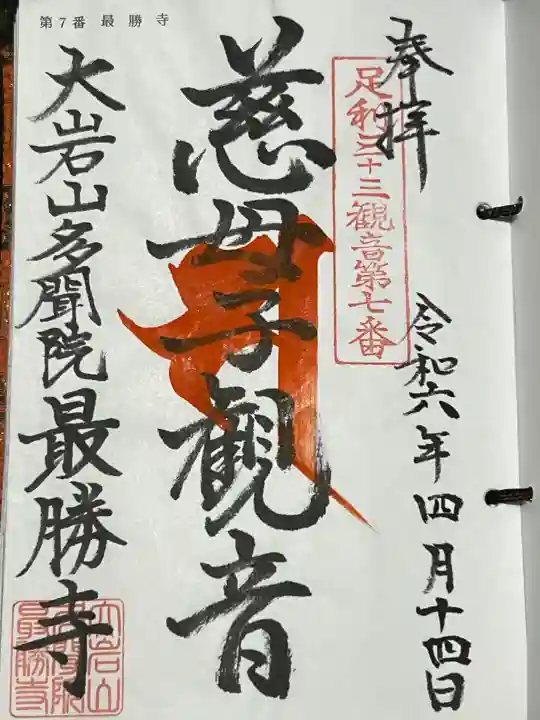 第7番 最勝寺
奉拝
足利三十三観音第七番
令和六年四月十四日
慈母子観音
大岩山多聞院最勝寺
大岩山
多聞院
最勝寺